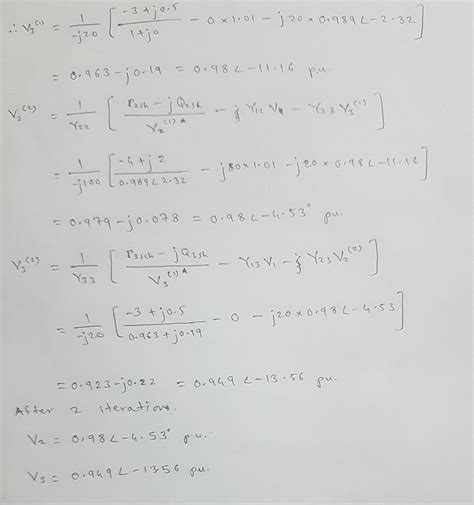 ∴ V₃⁽¹⁾ = 1/-j20 [ -3+j0.5 / 1+j0 - 0×1.01 - j20×0.989∠-2.32 ]
= 0.963-j0.19 = 0.98∠-11.16 p.u.
V₂⁽²⁾ = 1/Y₂₂ [ P₂sch - jQ₂sch / V₂⁽¹⁾* - Y₁₂ V₁ - Y₂₃ V₃⁽¹⁾ ]
= 1/-j100 [ -4+j2 / 0.989∠2.32 - j80×1.01 - j20×0.98∠-11.16 ]
= 0.979-j0.078 = 0.98∠-4.53° pu.
V₃⁽²⁾ = 1/Y₃₃ [ P₃sch - jQ₃sch / V₃⁽¹⁾* - Y₁₃V₁ - Y₂₃V₂⁽²⁾ ]
= 1/-j20 [ -3+j0.5 / 0.963+j0.19 - 0 - j20×0.98∠-4.53 ]
= 0.923-j0.22 = 0.949∠-13.56 pu.
After 2 iterations.
V₂ = 0.98∠-4.53° p.u.
V₃ = 0.949∠-13.56 pu